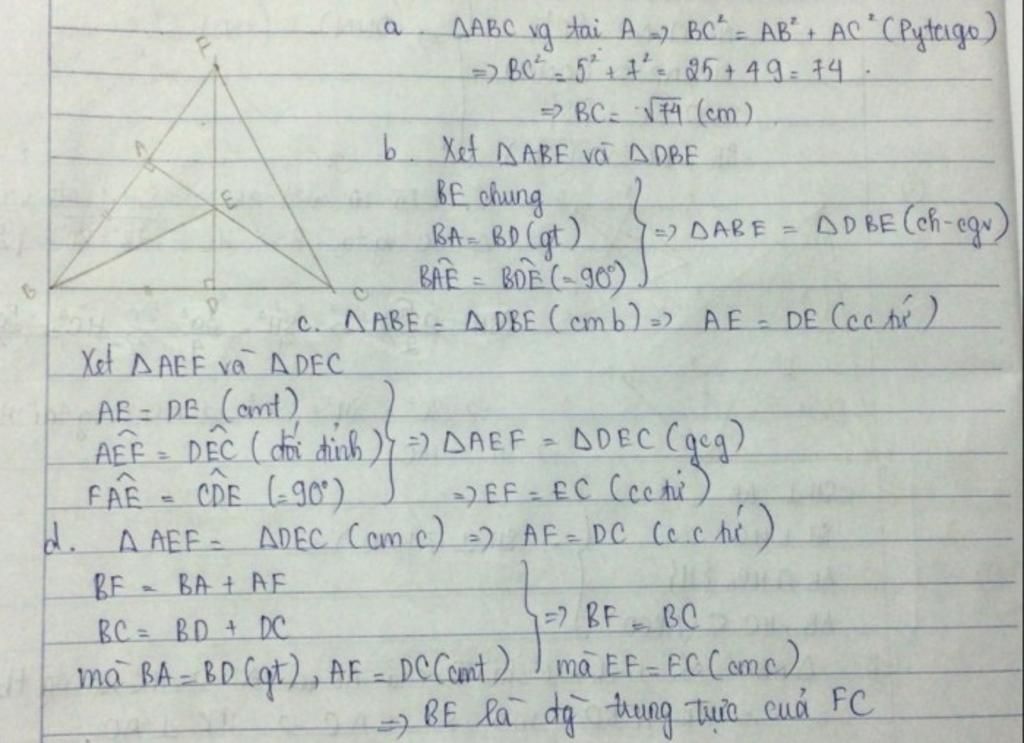 a. ΔABC vg tai A => BC² = AB² + AC² (Pytago)
=> BC² = 5² + 7² = 25 + 49 = 74.
=> BC = √74 (cm)
b. Xet ΔABE và ΔDBE
BE chung
BA = BD (gt)
BÂE = BD̂E (= 90°)
=> ΔABE = ΔDBE (ch-cgv)
c. ΔABE = ΔDBE (cmb) => AE = DE (cc tứ)
Xet ΔAEF và ΔDEC
AE = DE (cmt)
AÊF = DÊC (đối đỉnh)
FÂE = CD̂E (= 90°)
=> ΔAEF = ΔDEC (gcg)
=> EF = EC (cc tứ)
d. ΔAEF = ΔDEC (cm c) => AF = DC (c.c tứ)
BF = BA + AF
BC = BD + DC
mà BA = BD (gt), AF = DC (cmt)
=> BF = BC
mà EF = EC (cmc)
=> BE là đg trung trực cuả FC
F
A
E
B
D
C